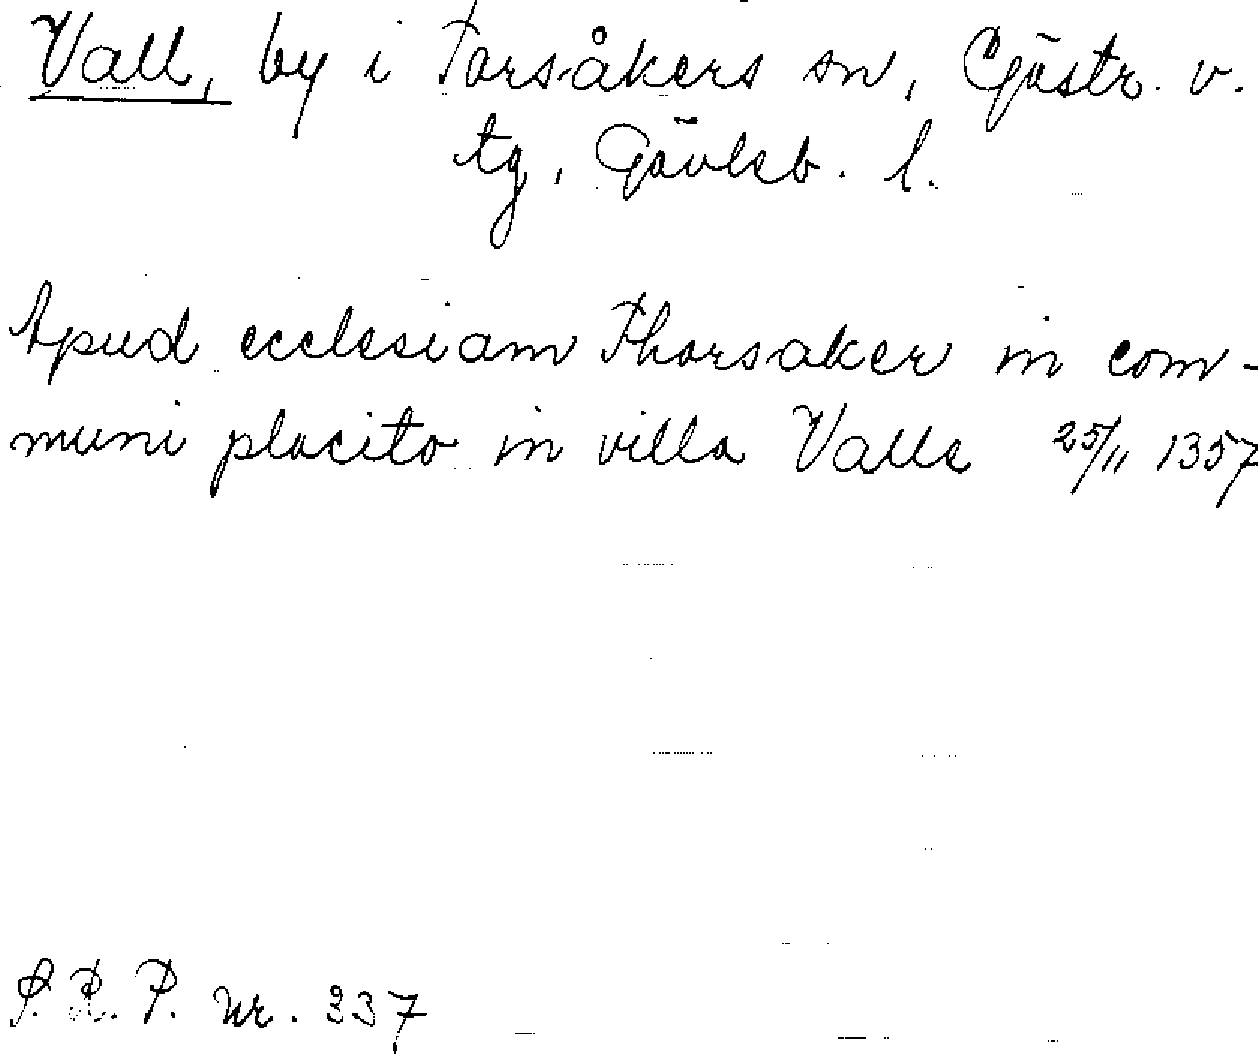 Vall, by i Torsåkers sn, Gästr. v.
tg, Gävleb. l.
Apud ecclesiam Thorsaker in com-
muni placito in villa Valle 25/11 1357
S.R.P. nr. 337